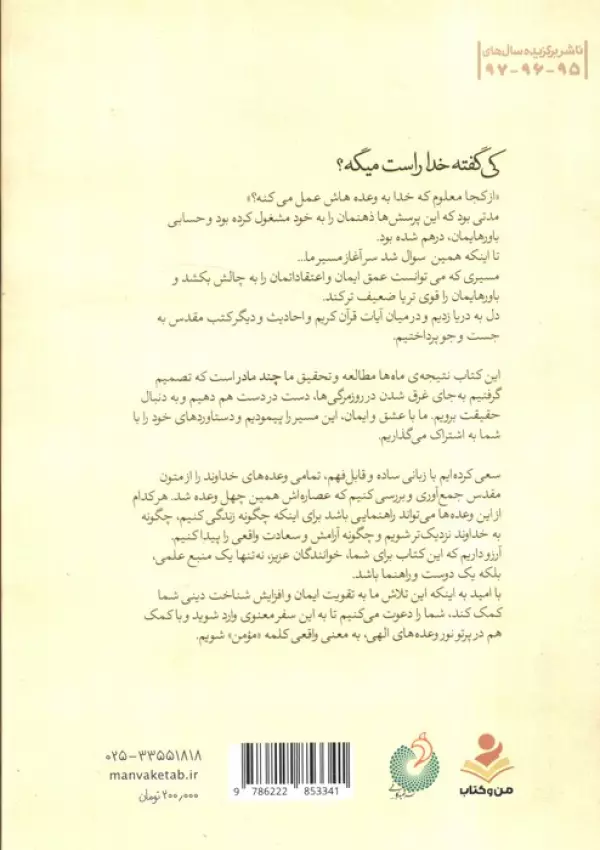 ناشر برگزیده سال‌های
۹۵-۹۶-۹۷
کی گفته خدا راست میگه؟
«از کجا معلوم که خدا به وعده هاش عمل می کنه؟»
مدتی بود که این پرسش‌ها ذهنمان را به خود مشغول کرده بود و حسابی
باورهایمان، درهم شده بود.
تا اینکه همین سوال شد سرآغاز مسیر ما...
مسیری که می توانست عمق ایمان و اعتقاداتمان را به چالش بکشد و
باورهایمان را قوی تر یا ضعیف تر کند.
دل به دریا زدیم و در میان آیات قرآن کریم و احادیث و دیگر کتب مقدس به
جست و جو پرداختیم.
این کتاب نتیجه‌ی ماه‌ها مطالعه و تحقیق ما چند مادر است که تصمیم
گرفتیم به‌جای غرق شدن در روزمرگی‌ها، دست در دست هم دهیم و به دنبال
حقیقت برویم. ما با عشق و ایمان، این مسیر را پیمودیم و دستاوردهای خود را با
شما به اشتراک می‌گذاریم.
سعی کرده‌ایم با زبانی ساده و قابل‌فهم، تمامی وعده‌های خداوند را از متون
مقدس جمع‌آوری و بررسی کنیم که عصاره‌اش همین چهل وعده شد. هر کدام
از این وعده‌ها می‌تواند راهنمایی باشد برای اینکه چگونه زندگی کنیم، چگونه
به خداوند نزدیک‌تر شویم و چگونه آرامش و سعادت واقعی را پیدا کنیم.
آرزو داریم که این کتاب برای شما، خوانندگان عزیز، نه‌تنها یک منبع علمی،
بلکه یک دوست و راهنما باشد.
با امید به اینکه این تلاش ما به تقویت ایمان و افزایش شناخت دینی شما
کمک کند، شما را دعوت می‌کنیم تا به این سفر معنوی وارد شوید و با کمک
هم در پرتو نور وعده‌های الهی، به معنی واقعی کلمه «مؤمن» شویم.
من و کتاب
9 786222 853341
۰۲۵-۳۳۵۵۱۸۱۸
manvaketab.ir
۲۰۰٫۰۰۰ تومان